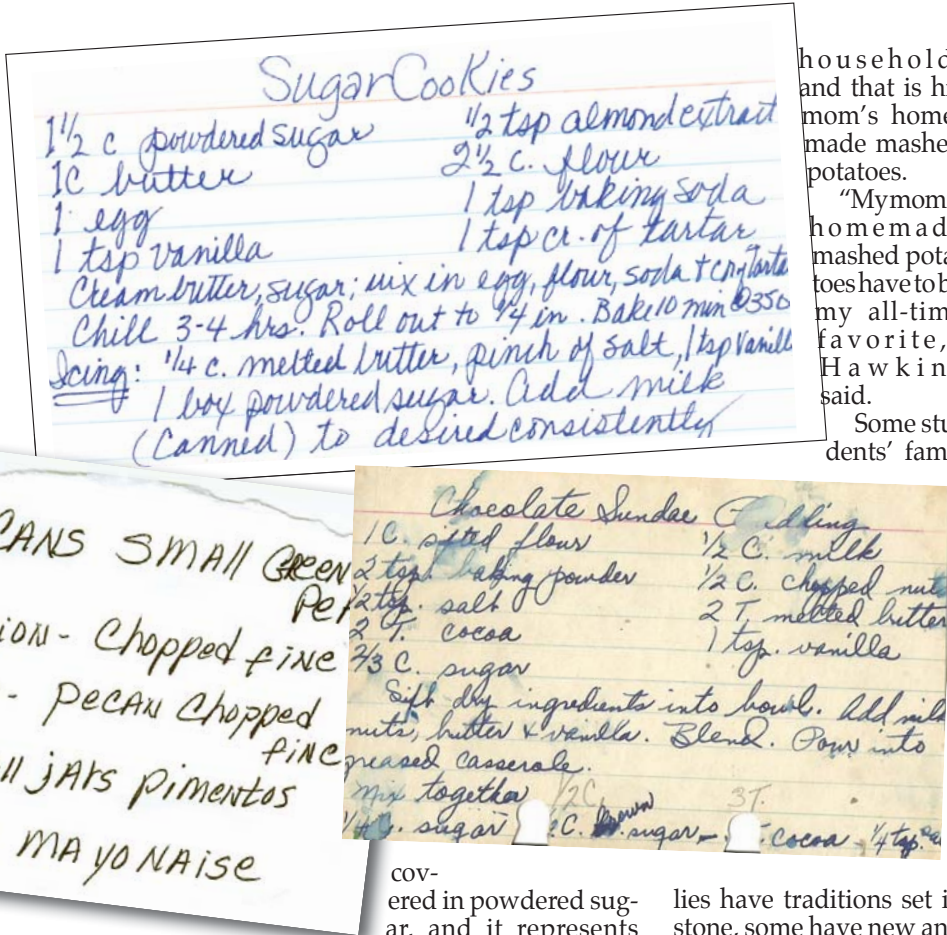 Sugar Cookies
1 1/2 c powdered sugar
1C butter
1 egg
1 tsp vanilla
1/2 tsp almond extract
2 1/2 c. flour
1 tsp baking soda
1 tsp cr. of tartar
Cream butter, sugar; mix in egg, flour, soda +
Chill 3-4 hrs. Roll out to 1/4 in. Bake 10 min @ 350
Icing: 1/4 c. melted butter, pinch of salt, 1 tsp Vanill
1 box powdered sugar. Add milk
(Canned) to desired consistently
household
and that is hi
mom's home
made mashe
potatoes.
"My mom'
homemad
mashed pota
toes have to b
my all-tim
favorite,
Hawkin
said.
Some stu
dents' fam
CANS SMALL GREEN
Pe
ion - Chopped fine
- Pecan Chopped
fine
ll jars pimentos
MAYONAISE
Chocolate Sundae
1 C. sifted flour
2 tsp. baking powder
1/2 tsp. salt
2 T. cocoa
2/3 C. sugar
1/2 C. milk
1/2 C. chopped nut
2 T. melted butter
1 tsp. vanilla
Sift dry ingredients into bowl. Add milk
nuts, butter & vanilla. Blend. Pour into
greased casserole.
Mix together 1/2C 3T.
sugar C. brown sugar - cocoa 1/4 tsp.
cov-
ered in powdered sug-
ar, and it represents
lies have traditions set i
stone, some have new an